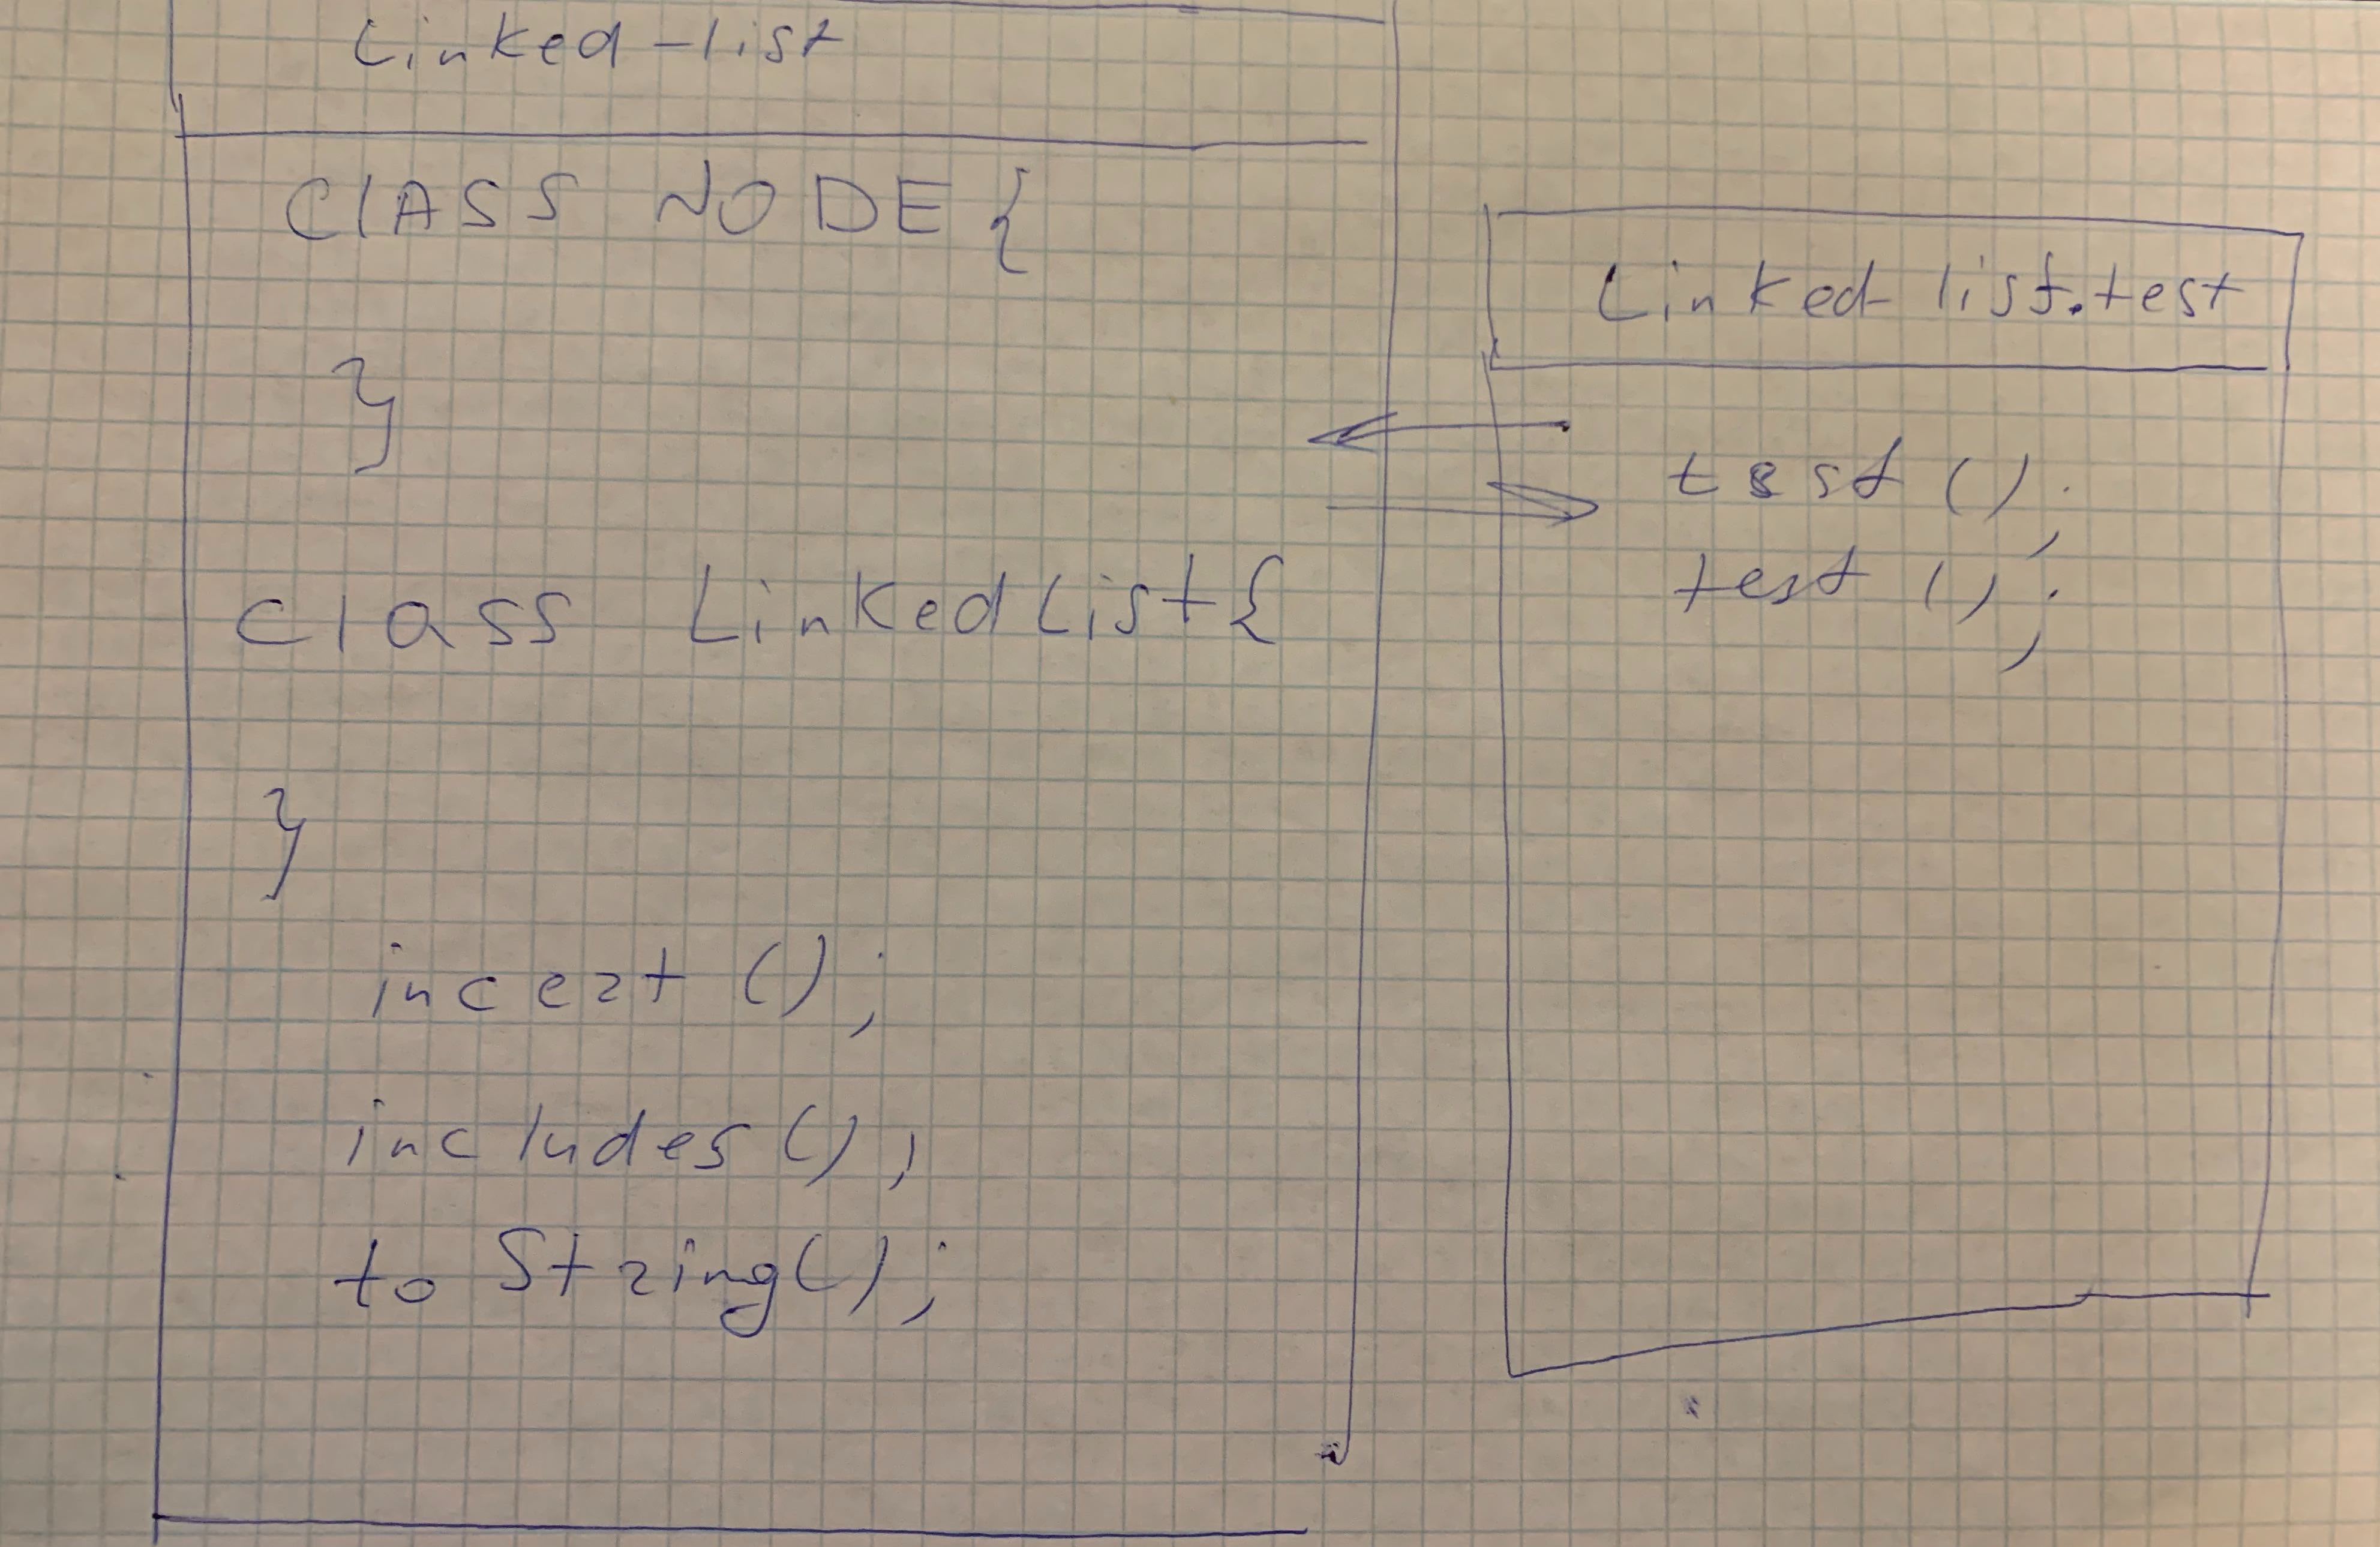 Linked-list
CLASS NODE {
}
class LinkedList {
}
incert ();
includes();
to String();
Linked-list.test
test ();
test ();